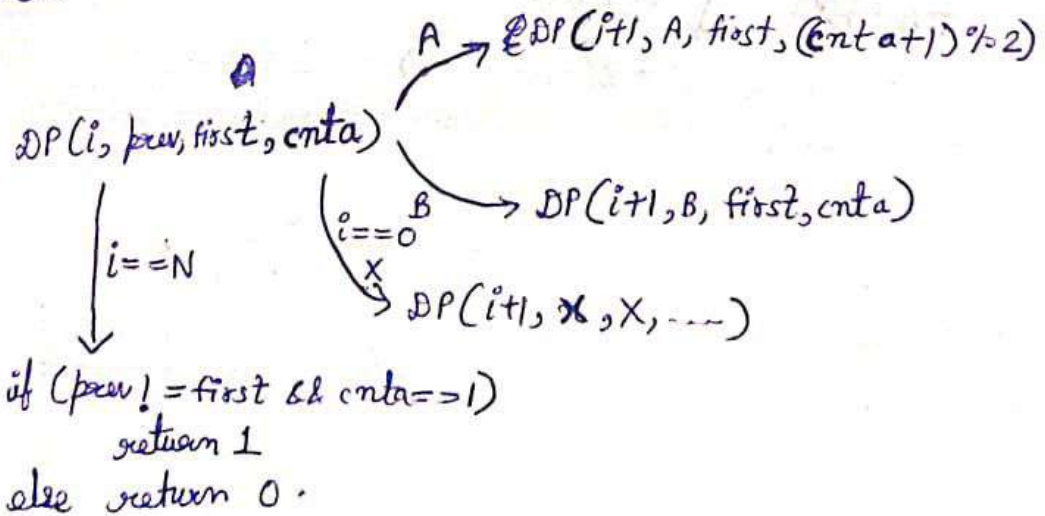 A → DP(i+1, A, first, (cnta+1)%2)
DP(i, prev, first, cnta)
B → DP(i+1, B, first, cnta)
i==0
i==N
X → DP(i+1, X, X, ....)
if (prev! = first && cnta==1)
return 1
else return 0.